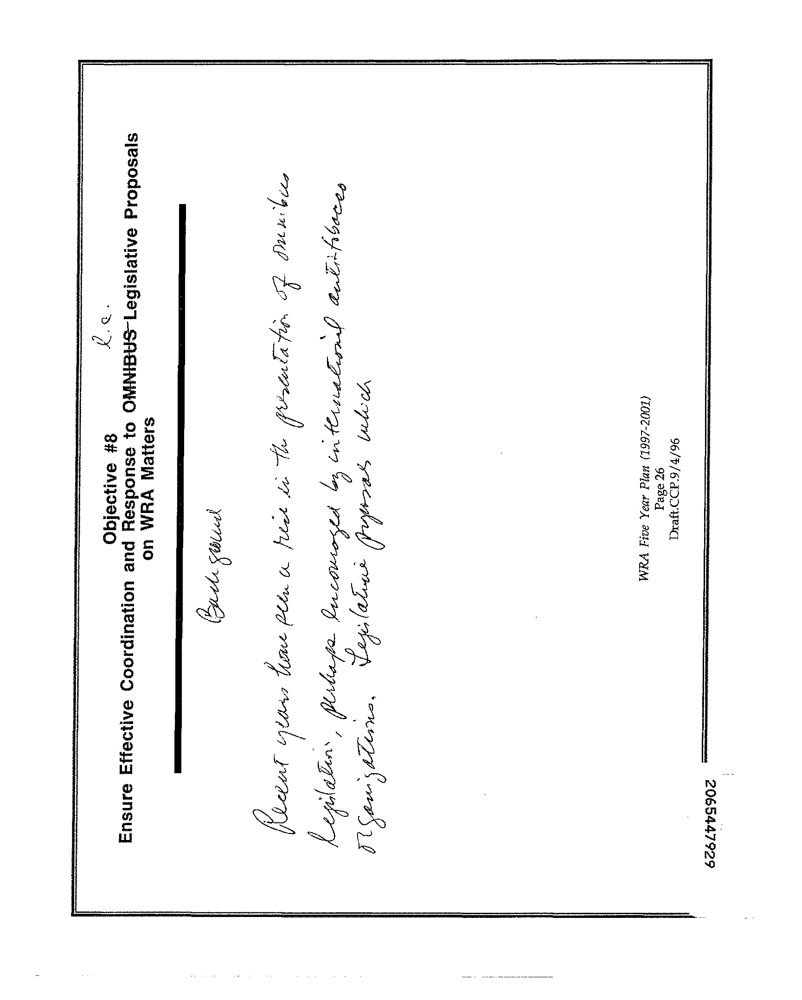 Objective #8
l.c.
Ensure Effective Coordination and Response to OMNIBUS Legislative Proposals
on WRA Matters
Background
Recent years have seen a rise in the presentation of omnibus
legislation, perhaps encouraged by international anti-tobacco
organizations. Legislative proposals which
WRA Five Year Plan (1997-2001)
Page 26
Draft.CCP.9/4/96
2065447929